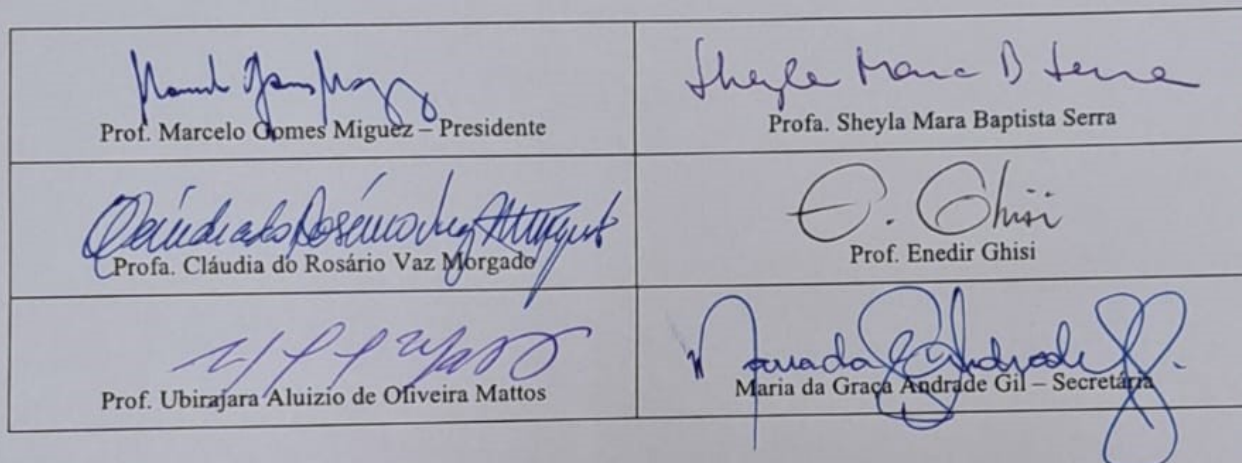 Prof. Marcelo Gomes Miguez – Presidente
Sheyla Mara B Serra
Profa. Sheyla Mara Baptista Serra
Profa. Cláudia do Rosário Vaz Morgado
E. Ghisi
Prof. Enedir Ghisi
Prof. Ubirajara Aluizio de Oliveira Mattos
Maria da Graça Andrade Gil – Secretária